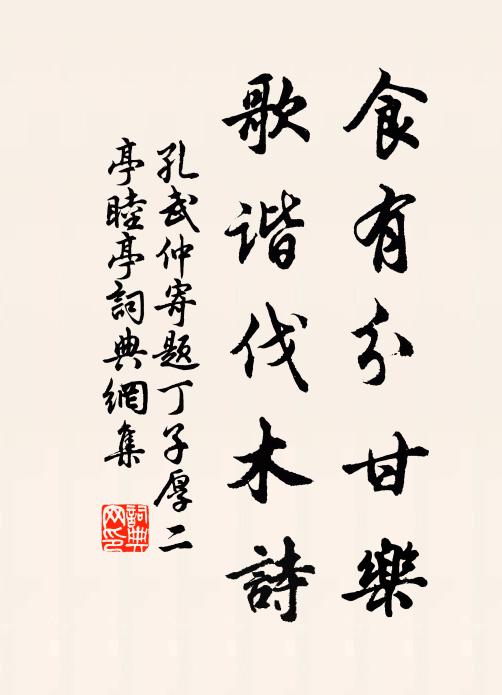 食有分甘樂
歌谐伐木詩
孔武仲寄题丁子厚二
亭睦亭詞典網集
詞典
网印